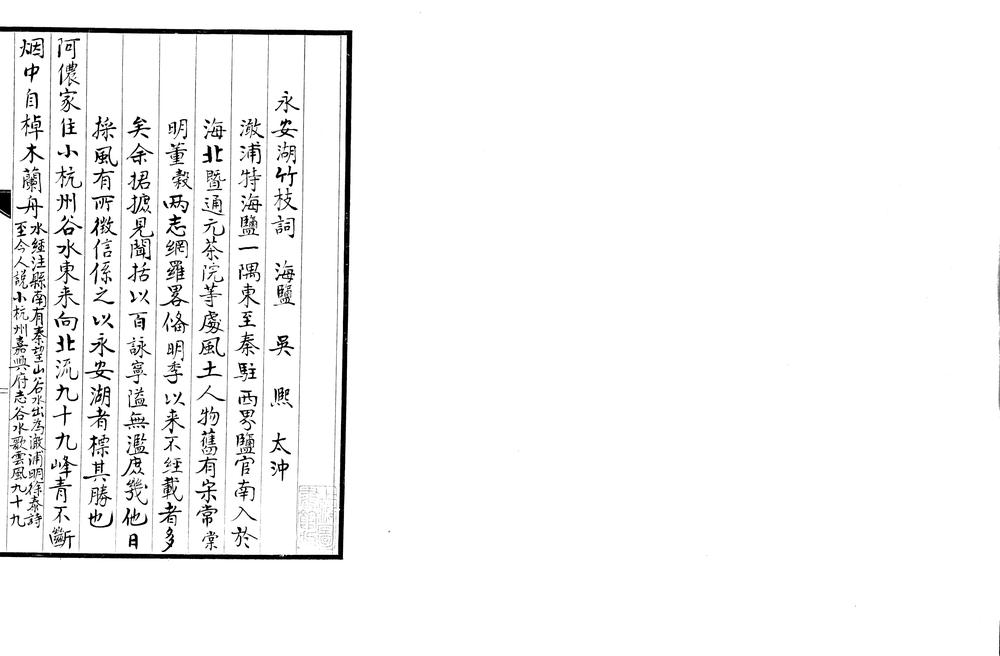 永安湖竹枝詞　海鹽　吳　熙　太沖
澉浦特海鹽一隅東至秦駐西界鹽官南入於
海北暨通元茶院等處風土人物舊有宋常棠
明董穀兩志網羅畧俻明季以来不經載者多
矣余捃摭見聞括以百詠寧隘無濫庶幾他日
採風有所徵信係之以永安湖者標其勝也
阿儂家住小杭州谷水東来向北流九十九峰青不斷
烟中自棹木蘭舟
水經注縣南有秦望山谷水出為澉浦明徐泰詩
至今人説小杭州嘉興府志谷水歌雲風九十九